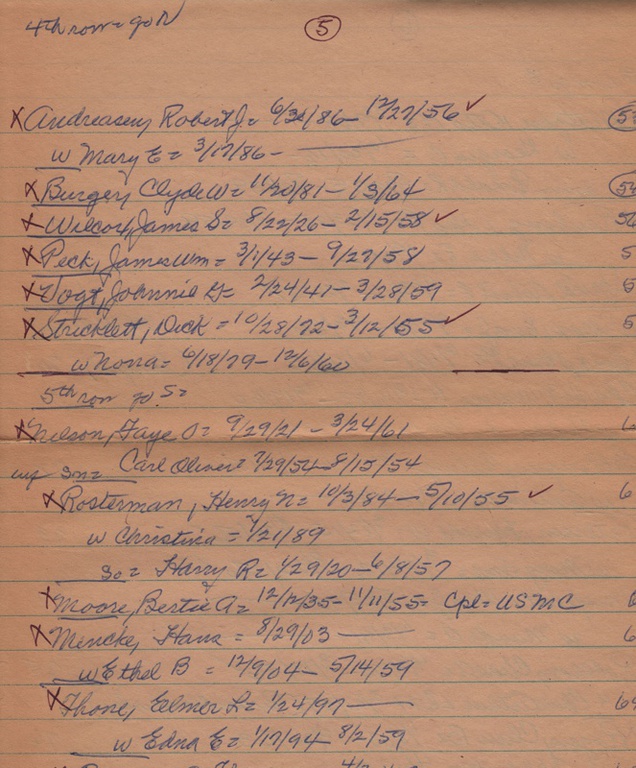 4th row = go N
5
X Andreasen, Robert J = 6/30/86 - 12/27/56 ✓
w Mary E = 3/17/86 -
X Burger, Clyde W = 11/20/81 - 1/3/64
X Wilcox, James S = 8/22/26 - 2/15/58 ✓
X Peck, James Wm = 3/1/43 - 9/27/58
X Vogt, Johnnie G = 2/24/41 - 3/28/59
X Stricklett, Dick = 10/28/72 - 3/12/55 ✓
w Nora = 6/18/79 - 12/6/60
5th row go S =
X Nelson, Faye O = 9/29/21 - 3/24/61
son = Carl Oliver = 7/29/54 - 8/15/54
X Rosterman, Henry N = 10/3/84 - 5/10/55 ✓
w Christina = 1/21/89
so = Harry R = 1/29/20 - 6/8/57
X Moore, Bertie A = 12/12/35 - 11/11/55 = Cpl = USMC
X Mencke, Hans = 8/29/03 -
w Ethel B = 12/9/04 - 5/14/59
X Thone, Elmer L = 1/24/97 -
w Edna E = 1/17/94 - 8/2/59